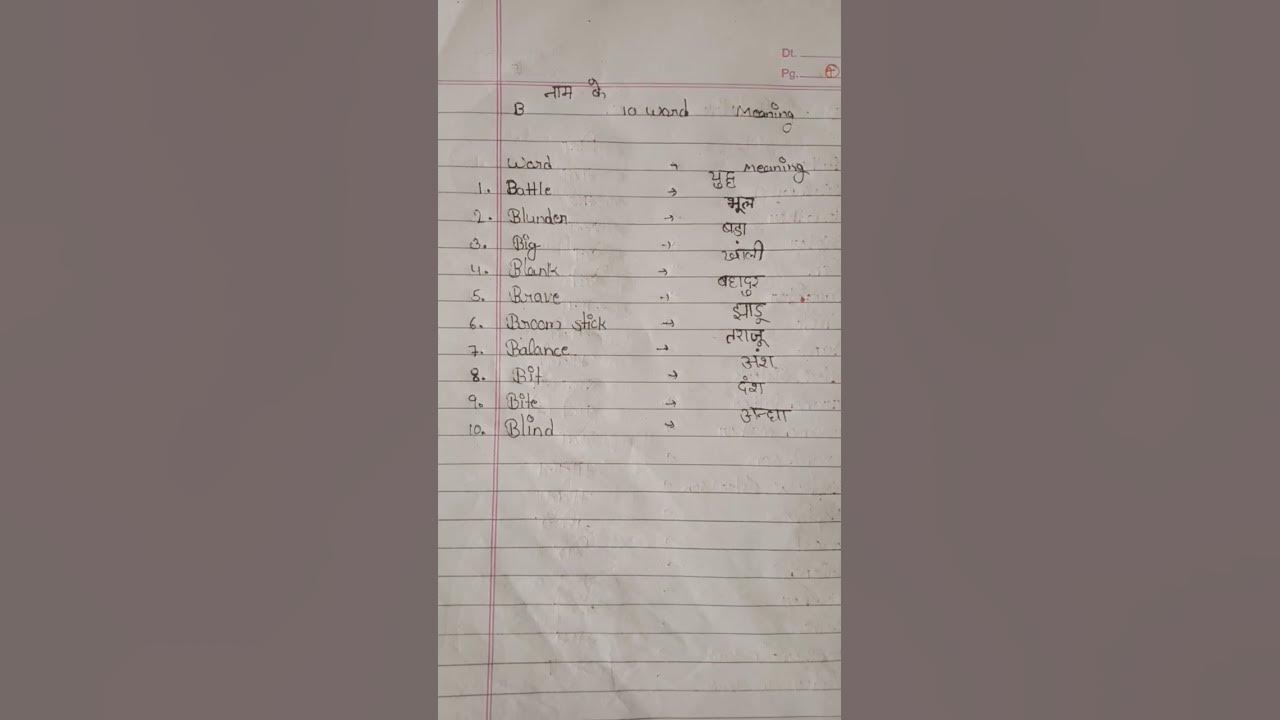 Dt.
Pg. 4
B नाम के 10 word Meaning
word → meaning
1. Battle → युद्ध
2. Blunder → भूल
3. Big → बड़ा
4. Blank → खाली
5. Brave → बहादुर
6. Broom stick → झाडू
7. Balance → तराजू
8. Bit → अंश
9. Bite → दंश
10. Blind → अन्धा